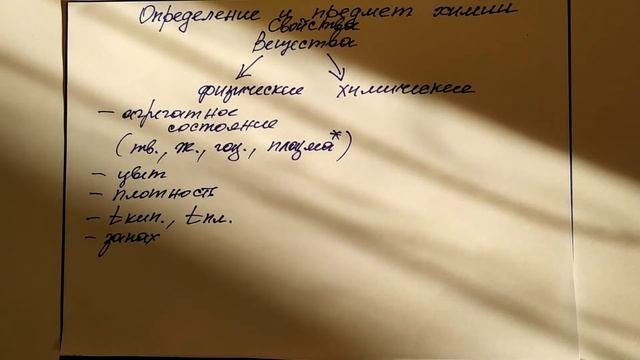 Определение и предмет химии
Свойства
Вещества
физические химические
– агрегатное
состояние
(тв., ж., газ., плазма*)
– цвет
– плотность
– tкип., tпл.
– запах